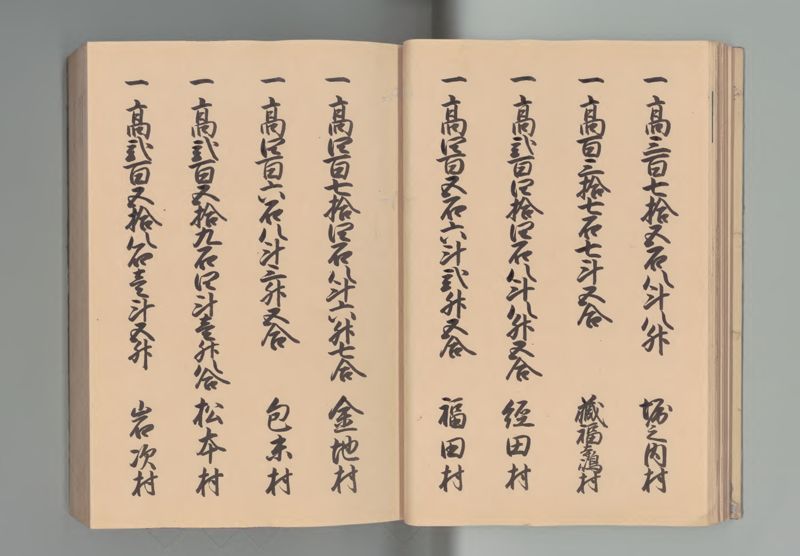 一高三百七拾五石八斗八升 堀之内村
一高百三拾七石七斗五合 蔵福嶋村
一高弐百四拾四石八斗八升五合 經田村
一高四百五石六斗弐升五合 福田村
一高四百七拾四石八斗六升七合 金地村
一高四百六石八斗三升五合 包末村
一高弐百五拾九石四斗壱升八合 松本村
一高弐百五拾八石壱斗五升 岩次村